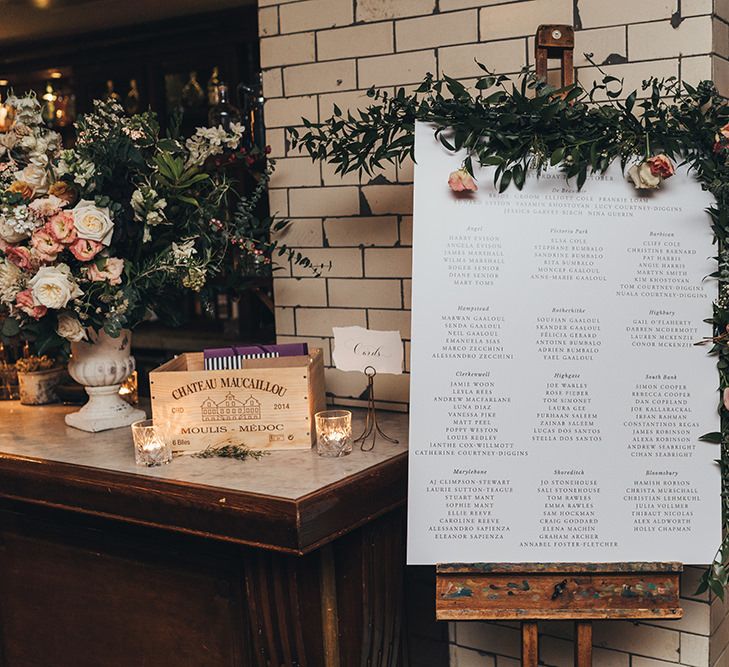 CHATEAU MAUCAILLOU
CRD
2014
MOULIS - MÉDOC
6 Blles
Cards
SATURDAY
OCTOBER
De Beauvoir
BRIDE, GROOM, ELLIOTT COLE,
EDWARD EVISON, YASAMIN KHOSTOVAN, LUCY COURTNEY-DIGGINS
JESSICA GARVES-BIRCH, NINA GUERIN
Angel
HARRY EVISON
ANGELA EVISON
JAMES MARSHALL
WILMA MARSHALL
ROGER SENIOR
DIANE SENIOR
TOBY MARSHALL
Victoria Park
ELSA COLE
STEPHANE BUMBALO
SANDRINE BUMBALO
MONCEF GAALOUL
ANNE-MARIE GAALOUL
Barbican
CLIFF COLE
CHRISTINE BARNARD
PAT HARRIS
ANGIE HARRIS
MARTYN SMITH
KIM KHOSTOVAN
TOM COURTNEY-DIGGINS
NUALA COURTNEY-DIGGINS
Hampstead
MARWAN GAALOUL
SENDA GAALOUL
NEIL GAALOUL
EMANUELA SIAS
MARCO ZECCHINI
ALESSANDRO ZECCHINI
Rotherhithe
YOUSSEF GAALOUL
SKANDER GAALOUL
FÉLICIA GERARD
ANTOINE BUMBALO
ADRIEN BUMBALO
YAEL GAALOUL
Highbury
GAIL O'FLAHERTY
DARREN MCDERMOTT
LAUREN MCKENZIE
CONOR MCKENZIE
Clerkenwell
JAMIE WOON
LEYLA REES
ANDREW MACFARLANE
LUNA DIAZ
VANESSA MIXTA
MATT PEEL
POPPY WESTON
LOUIS REDLEY
IANTHE COX-WILLMOTT
CATHERINE COURTNEY-DIGGINS
Highgate
JOE WARLEY
ROSIE HARRIS
TOM SIMONET
LAURA GEE
FURHAAN SALEEM
ZAINAB SALEEM
LUCAS DOS SANTOS
STELLA DOS SANTOS
South Bank
SIMON COOPER
REBECCA COOPER
DAN COPELAND
JOE KALLARACKAL
IRFAN RAHMAN
CONSTANTINOS REGAS
JAMES ROMAN
ALEXA ROMAN
ANDREW SEABRIGHT
CIHAN SEABRIGHT
Marylebone
AJ CLIMPSON-STEWART
LAURIE SUTTON-TEAGUE
STUART MANT
SOPHIE MANT
ELLIE REEVE
CAROLINE REEVE
ALESSANDRO SAPIENZA
ELEANOR SAPIENZA
Shoreditch
JO STONEHOUSE
SALI STONEHOUSE
TOM RAWLES
EMMA RAWLES
SAM HOCKMAN
CRAIG GODDARD
ELENA MACHÍN
GRAHAM ARCHER
ANNABEL FOSTER-FLETCHER
Bloomsbury
HAMISH ROBSON
CHRISTA MURSCHALL
CHRISTIAN LEHMKUHL
JULIA VOLLMER
THIBAUT NICOLAS
ALEX ALDWORTH
HOLLY CHAPMAN